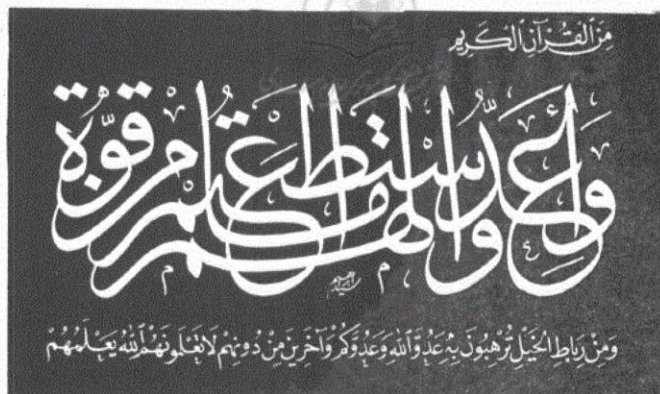 مِنَ الْقُرْآنِ الْكَرِيمِ
وَأَعِدُّوا لَهُمْ مَا اسْتَطَعْتُمْ مِنْ قُوَّةٍ
وَمِنْ رِبَاطِ الْخَيْلِ تُرْهِبُونَ بِهِ عَدُوَّ اللَّهِ وَعَدُوَّكُمْ وَآخَرِينَ مِنْ دُونِهِمْ لَا تَعْلَمُونَهُمُ اللَّهُ يَعْلَمُهُمْ